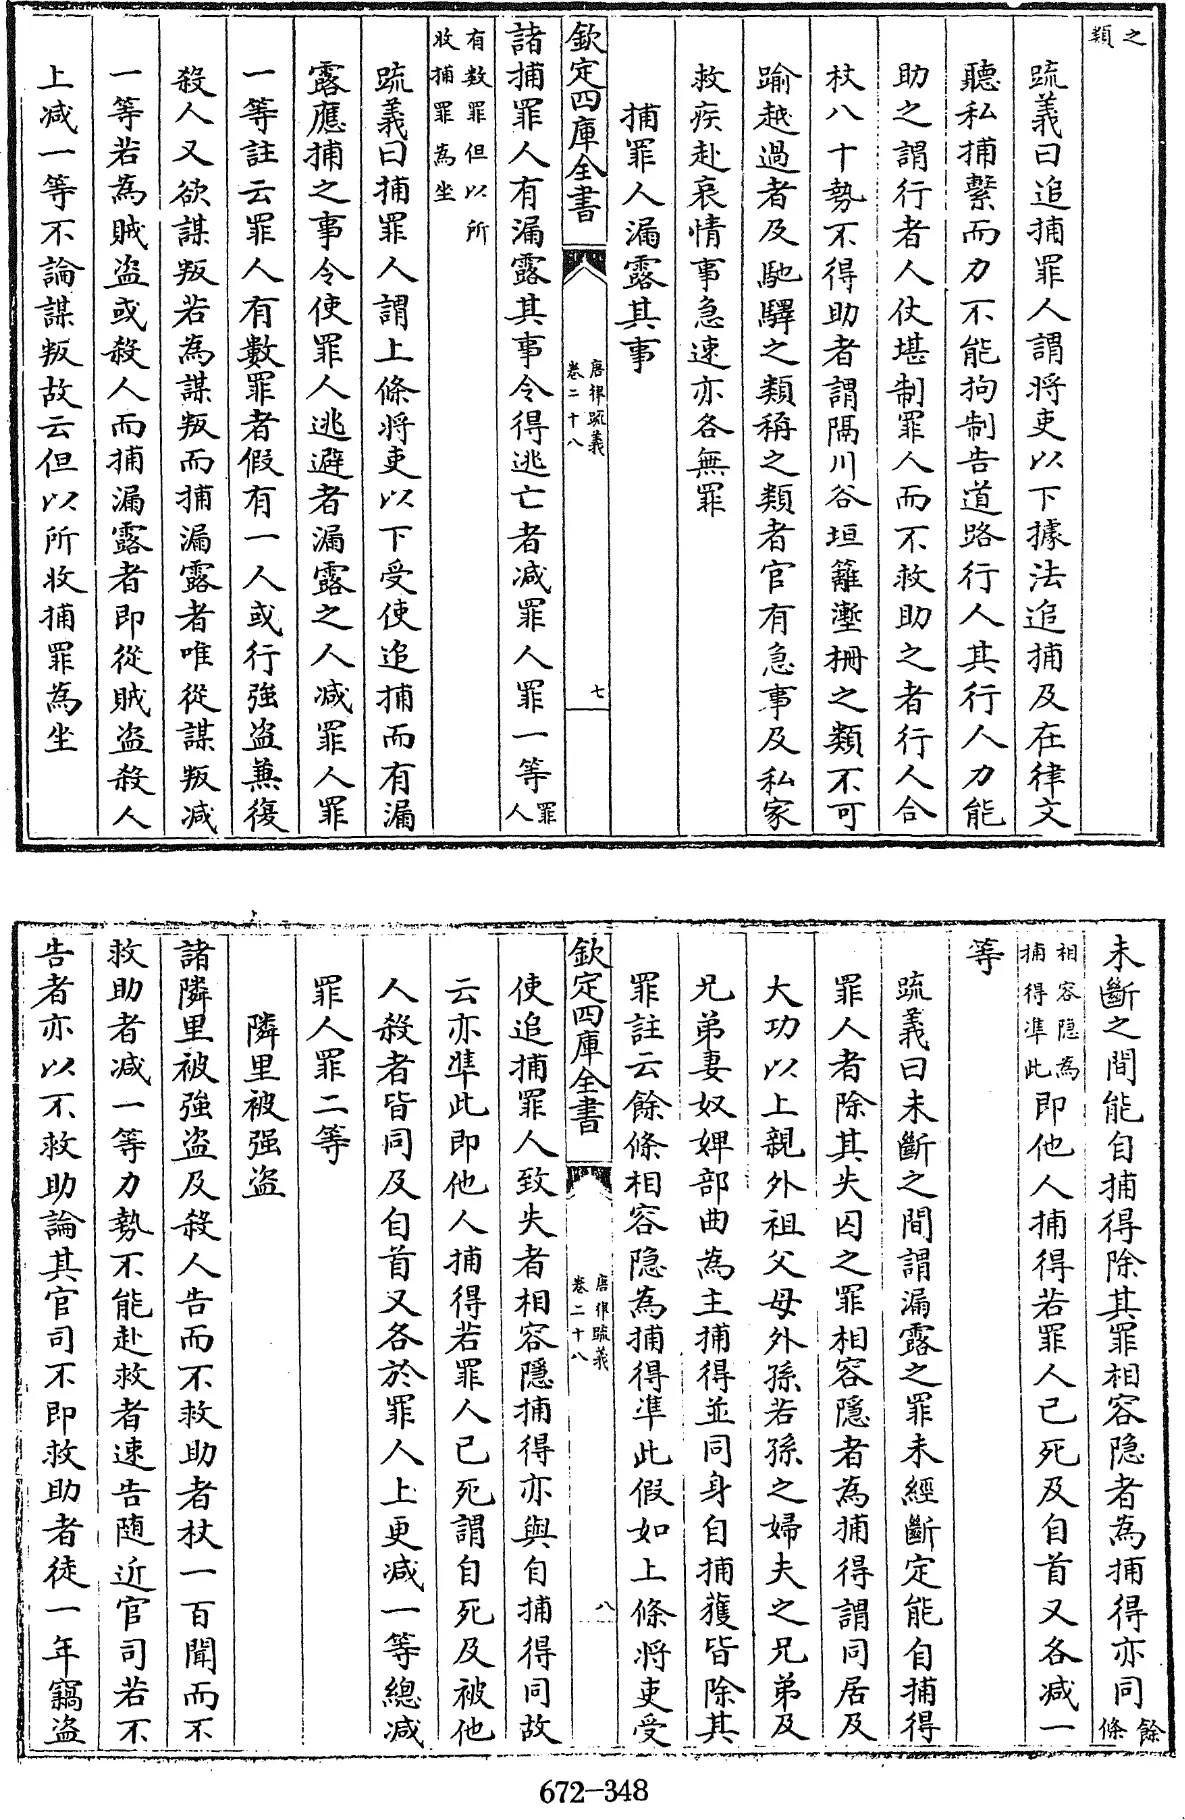 之類
疏義曰追捕罪人謂將吏以下據法追捕及在律文
聽私捕繫而力不能拘制告道路行人其行人力能
助之謂行者人仗堪制罪人而不救助之者行人合
杖八十勢不得助者謂隔川谷垣籬塹柵之類不可
踰越過者及馳驛之類稱之類者官有急事及私家
救疾赴哀情事急速亦各無罪
捕罪人漏露其事
欽定四庫全書
唐律疏義
卷二十八
七
諸捕罪人有漏露其事令得逃亡者減罪人罪一等罪人
有數罪但以所
收捕罪為坐
疏義曰捕罪人謂上條將吏以下受使追捕而有漏
露應捕之事令使罪人逃避者漏露之人減罪人罪
一等註云罪人有數罪者假有一人或行強盜兼復
殺人又欲謀叛若為謀叛而捕漏露者唯從謀叛減
一等若為賊盜或殺人而捕漏露者即從賊盜殺人
上減一等不論謀叛故云但以所收捕罪為坐
未斷之間能自捕得除其罪相容隱者為捕得亦同餘條
相容隱為
捕得準此
即他人捕得若罪人已死及自首又各減一
等
疏義曰未斷之間謂漏露之罪未經斷定能自捕得
罪人者除其失囚之罪相容隱者為捕得謂同居及
大功以上親外祖父母外孫若孫之婦夫之兄弟及
兄弟妻奴婢部曲為主捕得並同身自捕獲皆除其
罪註云餘條相容隱為捕得準此假如上條將吏受
欽定四庫全書
唐律疏義
卷二十八
八
使追捕罪人致失者相容隱捕得亦與自捕得同故
云亦準此即他人捕得若罪人已死謂自死及被他
人殺者皆同及自首又各於罪人上更減一等總減
罪人罪二等
隣里被强盜
諸隣里被強盜及殺人告而不救助者杖一百聞而不
救助者減一等力勢不能赴救者速告隨近官司若不
告者亦以不救助論其官司不即救助者徒一年竊盜
672-348